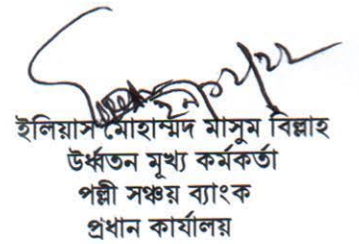 ইলিয়াস মোহাম্মদ মাসুম বিল্লাহ
উর্ধ্বতন মূখ্য কর্মকর্তা
পল্লী সঞ্চয় ব্যাংক
প্রধান কার্যালয়